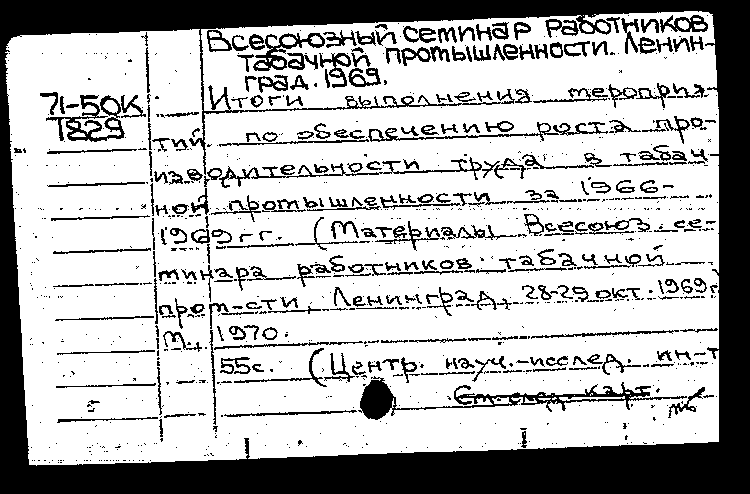 Всесоюзный семинар работников
табачной промышленности. Ленин-
град. 1969.
71-50К
1829
Итоги выполнения мероприя-
тий по обеспечению роста про-
изводительности труда в табач-
ной промышленности за 1966-
1969гг. (Материалы Всесоюз. се-
минара работников табачной
пром-сти, Ленинград, 28-29 окт. 1969г.)
М., 1970.
55с. (Центр. науч.-исслед. ин-т
См. след. карт.